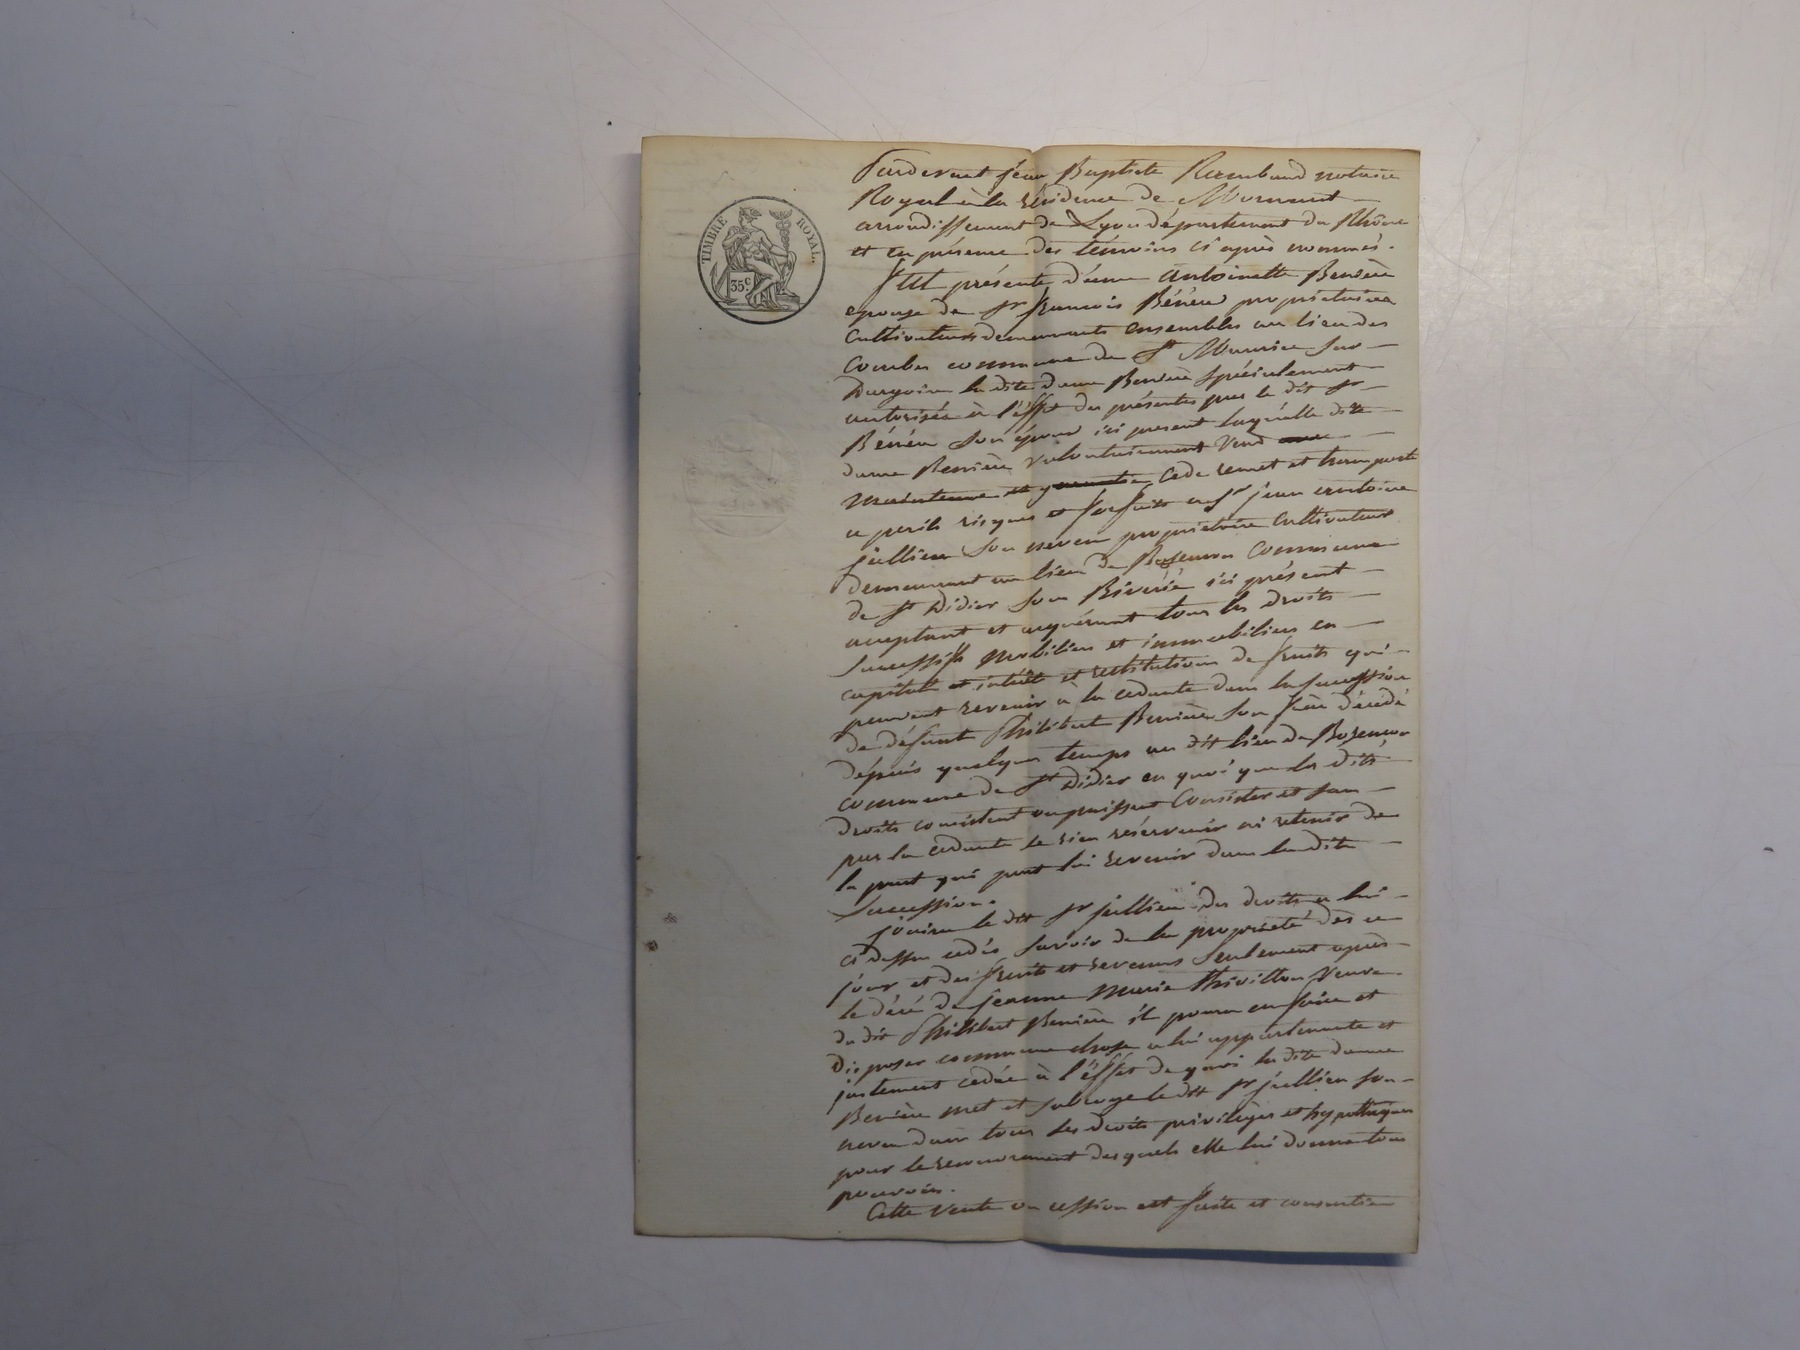 TIMBRE ROYAL.
35 c.
Pardevant jean Baptiste Rambaud notaire
Royal à la résidence de Mornant
arrondissement de Lyon département du Rhône
et en présence des témoins ci après nommés.
fut présente dame antoinette Berière
epouse de Sr françois Bérieu propriétaires
Cultivateurs demeurants ensembles au lieu des
Combes commune de St Maurice Sur
Dargoire la dite dame Berière Spécialement
autorisée à l'éffet des présentes par le dit Sr
Bérieu Son époux ici present laquelle dite
dame Berière volontairement vend
maintenue et garantie Cede remet et transporte
a perils risques et forfaits au Sr jean antoine
jullien Son neveu propriétaire Cultivateur
demeurant au lieu de Bozeuron Commune
de St Didier Sous Riverie ici présent
acceptant et acquérant tous les droits
Successifs mobiliers et immobiliers en
capital et intérêt et restitution de fruits qui
peuvent revenir à la cedante dans la Succession
de défunt Philibert Berière Son frère décédé
dépuis quelques temps au dit lieu de Bozeuron
commune de St Didier en quoi que les dits
droits consistent ou puissent Consister et sans
par la cedante se rien réserver ni retenir de
la part qui peut lui revenir dans la dite
Succession.
jouira le dit Sr jullien des droits a lui
ci dessus cedés Savoir de la propriété dès ce
jour et des fruits et revenus Seulement après
le décé de jeanne Marie Thivillon Veuve
du dit Philibert Berière il pourra en faire et
Disposer comme une chose a lui appartenante et
justement cedée à l'éffet de quoi la dite dame
Berière met et Subroge le dit Sr jullien Son
neveu dans tous Ses droits privilèges et hypothèques
pour le recouvrement desquels elle lui donne tous
pouvoirs.
Cette Vente ou cession est faite et consentie